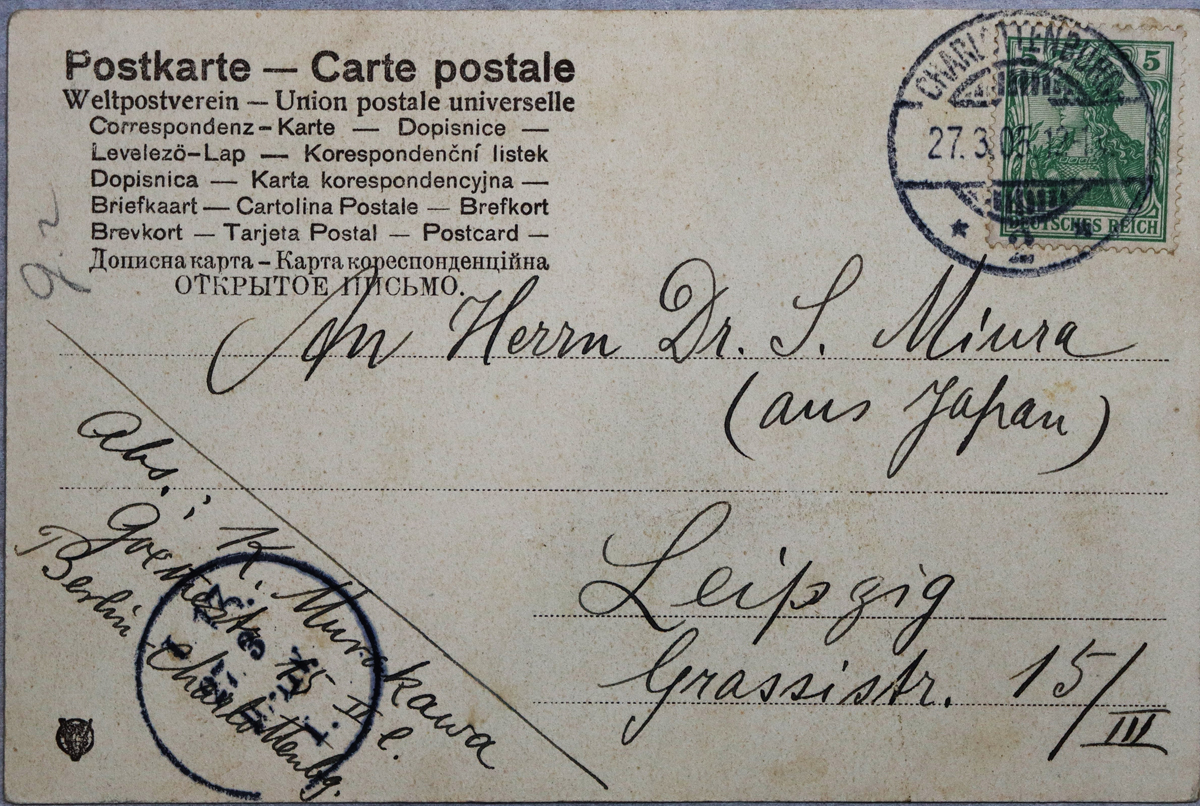 Postkarte — Carte postale
Weltpostverein — Union postale universelle
Correspondenz-Karte — Dopisnice —
Levelező-Lap — Korespondenční listek
Dopisnica — Karta korespondencyjna —
Briefkaart — Cartolina Postale — Brefkort
Brevkort — Tarjeta Postal — Postcard —
Дописна карта – Карта кореспонденційна
ОТКРЫТОЕ ПИСЬМО.
CHARLOTTENBURG
27. 3.
5 5
DEUTSCHES REICH
An Herrn Dr. S. Miura
(aus Japan)
Leipzig
Grassistr. 15/III
Abs.: K. Murakawa
Goethestr. 15 II l.
Berlin Charlottenbg.